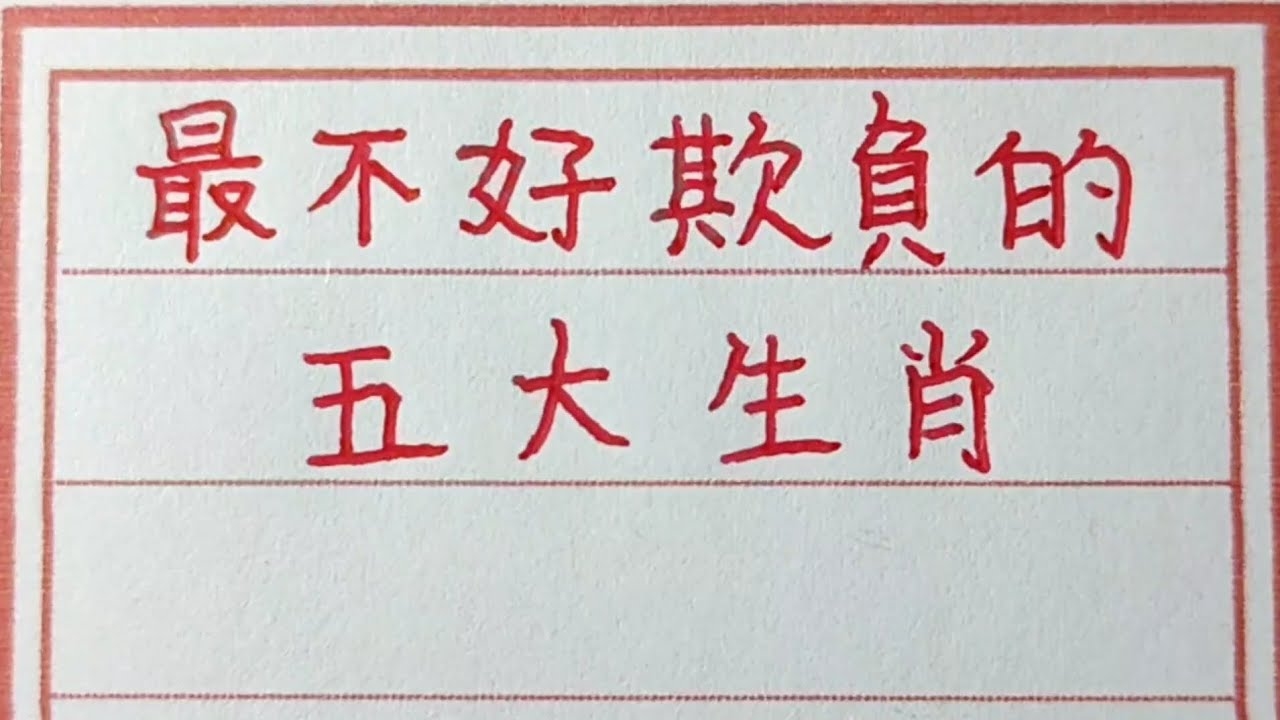 最不好欺負的
五大生肖